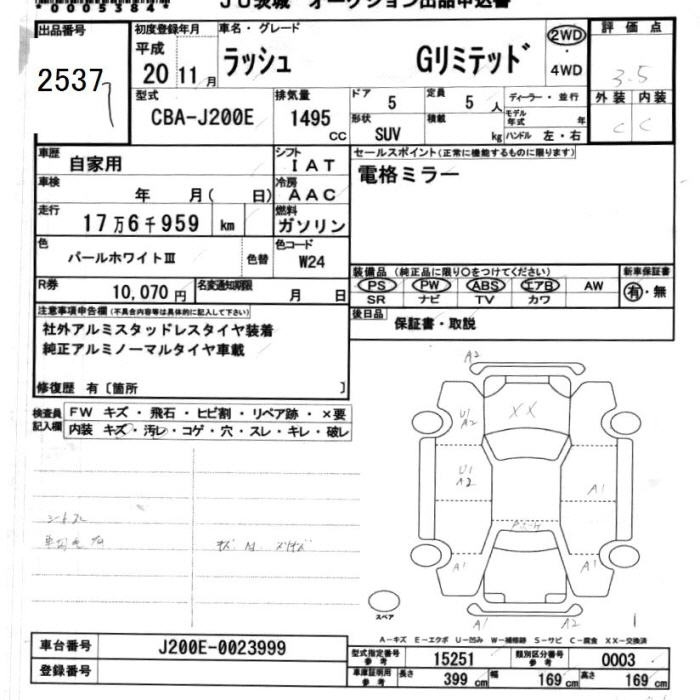 *0005384*
JU茨城 オークション出品申込書
出品番号 初度登録年月 車名・グレード 2WD 評価点
2537 平成 20 11月 ラッシュ Gリミテッド 4WD 3.5
型式 排気量 ドア 定員 ディーラー・並行 外装 内装
CBA-J200E 1495 CC 5 5人 モデル年式 年 C C
形状 積載
SUV kg ハンドル 左・右
車歴 自家用 シフト IAT セールスポイント(正常に機能するものに限ります)
車検 年 月( 日) 冷房 AAC 電格ミラー
走行 17万6千959 km 燃料 ガソリン
色 パールホワイトⅢ 色替 色コード W24
装備品(純正品に限り○をつけてください) 新車保証書
R券 10,070円 名変通知期限 月 日 PS PW ABS エアB AW 有・無
SR ナビ TV カワ
注意事項申告欄(不具合内容等は具体的に記入して下さい) 後日品 保証書・取説
社外アルミスタッドレスタイヤ装着
純正アルミノーマルタイヤ車載
修復歴 有〔箇所 〕
検査員記入欄 FW キズ・飛石・ヒビ割・リペア跡・×要
内装 キズ・汚レ・コゲ・穴・スレ・キレ・破レ
A2
U1 A2 XX
U1 A2
A1
A1 A1
スペア A1 A2
A-キズ E-エクボ U-凹み W-補修跡 S-サビ C-腐食 XX-交換済
車台番号 J200E-0023999 型式指定番号 参考 15251 類別区分番号 参考 0003
登録番号 車庫証明用 参考 長さ 399 cm 幅 169 cm 高さ 169 cm